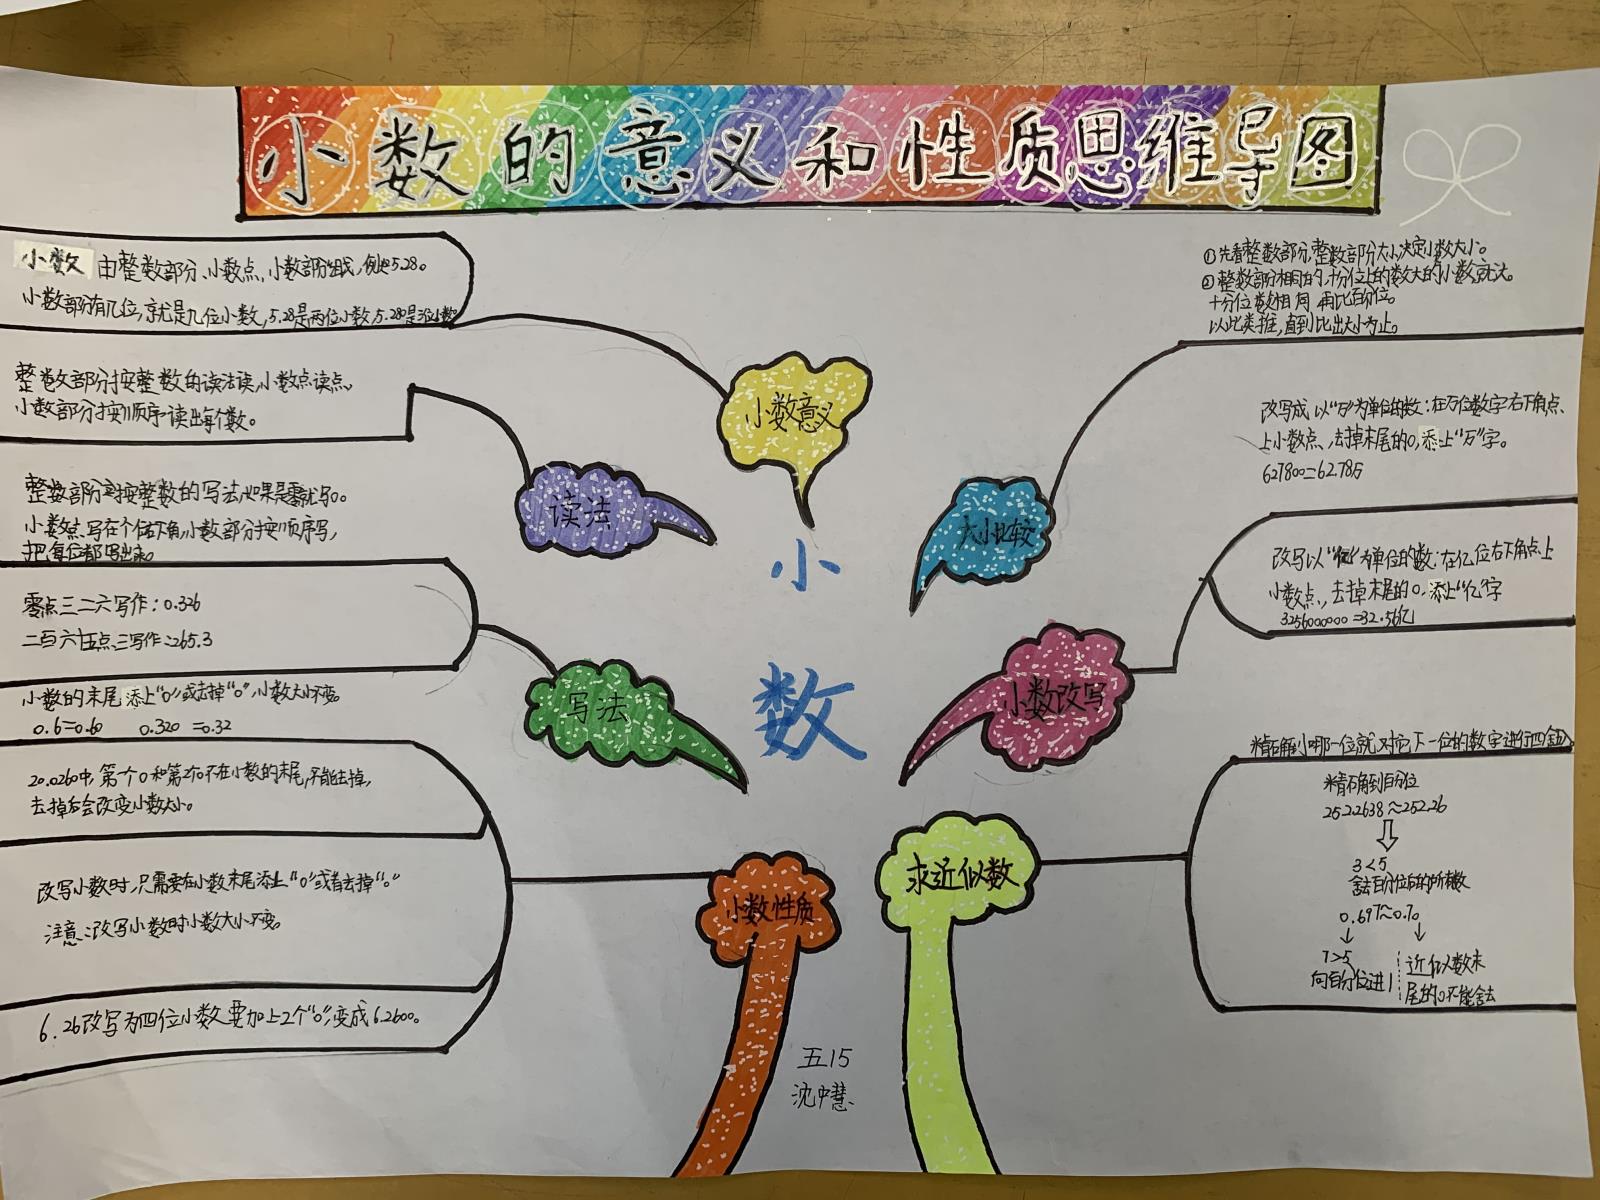 小数的意义和性质思维导图
小数 由整数部分、小数点、小数部分组成，例如5.28。
小数部分有几位，就是几位小数，5.28是两位小数，5.280是三位小数
整数部分按整数的读法读，小数点读点、
小数部分按顺序读出每个数。
整数部分按整数的写法，如果是零就写0。
小数点写在个位右下角，小数部分按顺序写，
把每位都写出来。
零点三二六写作：0.326
二百六十五点三写作：265.3
小数的末尾添上“0”或去掉“0”，小数大小不变。
0.6=0.60 0.320=0.32
20.0260中，第一个0和第二个0不在小数的末尾，不能去掉，
去掉后会改变小数大小。
改写小数时，只需要在小数末尾添上“0”或者去掉“0”
注意：改写小数时小数大小不变。
6.26改写为四位小数要加上2个“0”，变成6.2600。
小数意义
读法
写法
小数性质
小
数
大小比较
小数改写
求近似数
①先看整数部分，整数部分大小决定小数大小。
②整数部分相同的，十分位上的数大的小数就大。
十分位数相同，再比百分位。
以此类推，直到比出大小为止。
改写成以“万”为单位的数：在万位数字右下角点
上小数点、去掉末尾的0，添上“万”字。
627800=62.78万
改写以“亿”为单位的数：在亿位右下角点上
小数点，去掉末尾的0，添上“亿”字
3256000000=32.56亿
精确到哪一位就对它下一位的数字进行四舍五入
精确到百分位
252.2638≈252.26
3<5
舍去百分位后的所有数
0.697≈0.70
7>5
向百分位进1
近似数末
尾的0不能舍去
五15
沈中慧